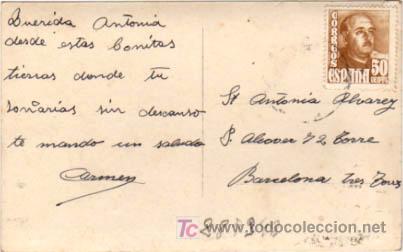 Querida Antonia
desde estas bonitas
tierras donde tu
soñarias sin descanso
te mando un saludo
Carmen
CORREOS
ESPAÑA
50
CENTS
St Antonia Alvarez
P. Alcover 72 Torre
Barcelona tres Torres
www.todocoleccion.net